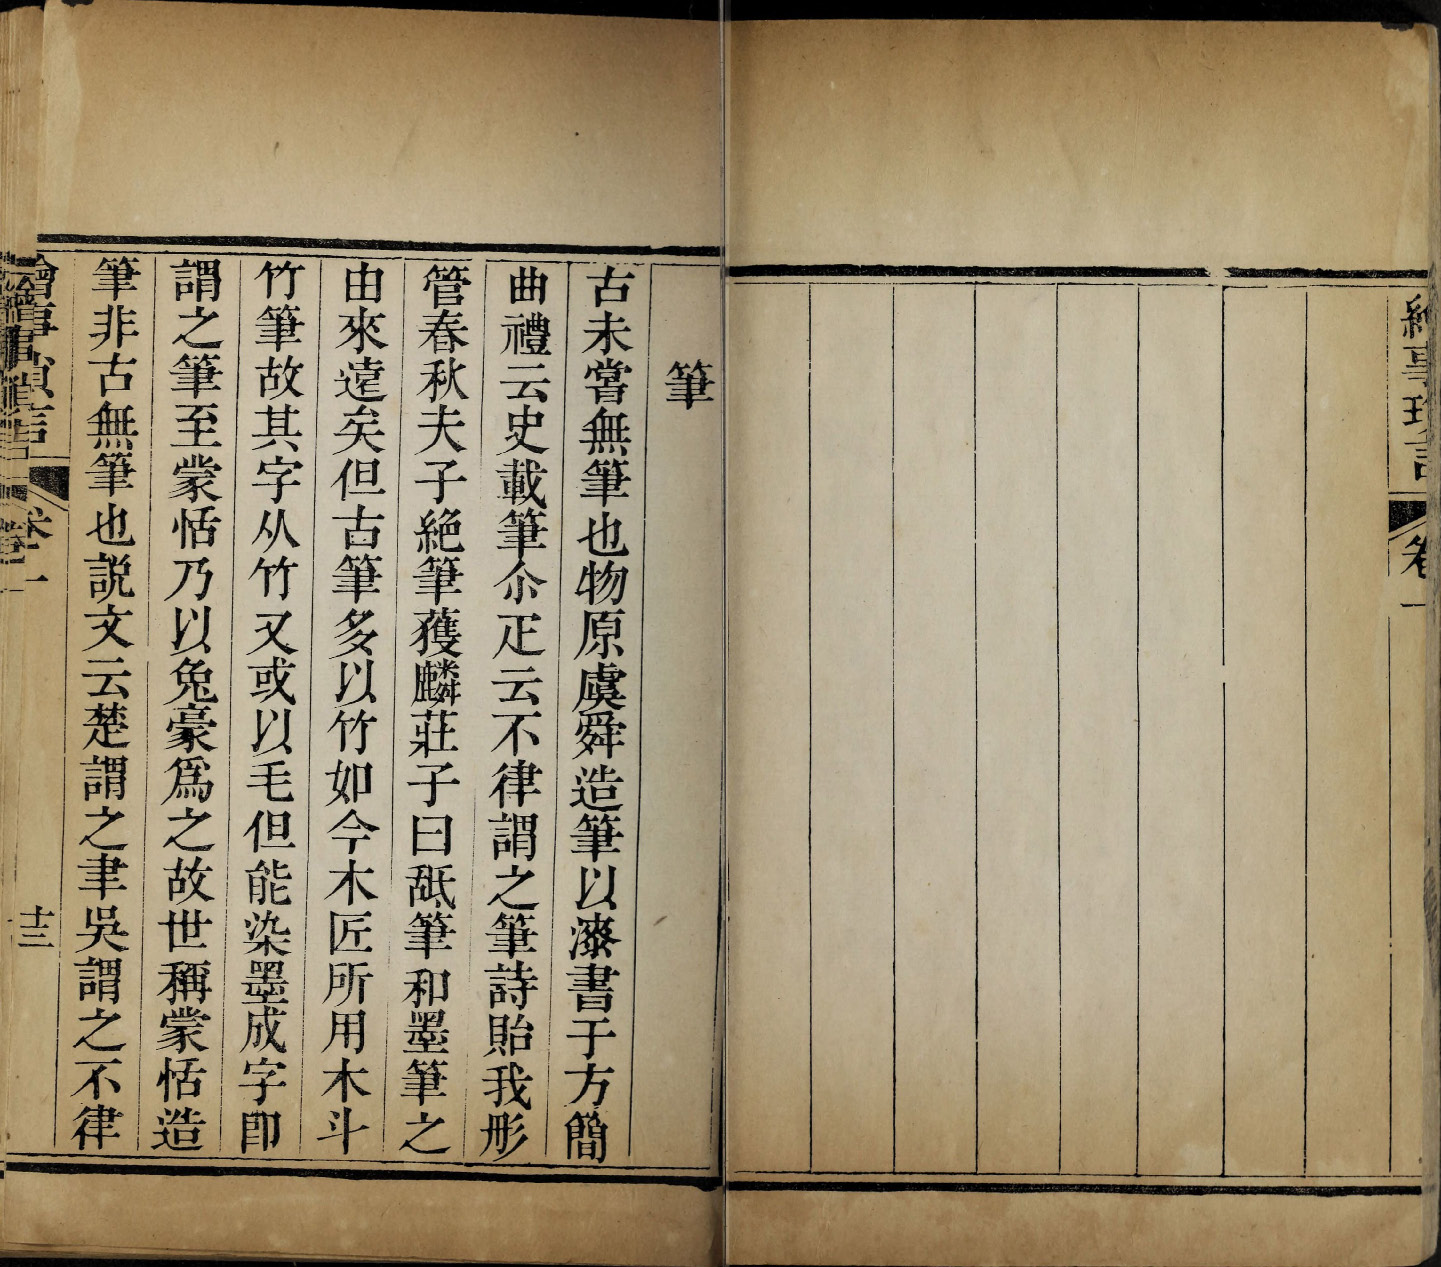 繪事瑣言
卷一
筆
古未嘗無筆也物原虞舜造筆以漆書于方簡
曲禮云史載筆尒疋云不律謂之筆詩貽我彤
管春秋夫子絶筆獲麟莊子曰舐筆和墨筆之
由來遠矣但古筆多以竹如今木匠所用木斗
竹筆故其字从竹又或以毛但能染墨成字即
謂之筆至蒙恬乃以兔豪爲之故世稱蒙恬造
筆非古無筆也説文云楚謂之聿吳謂之不律
繪事瑣言
卷一
十三